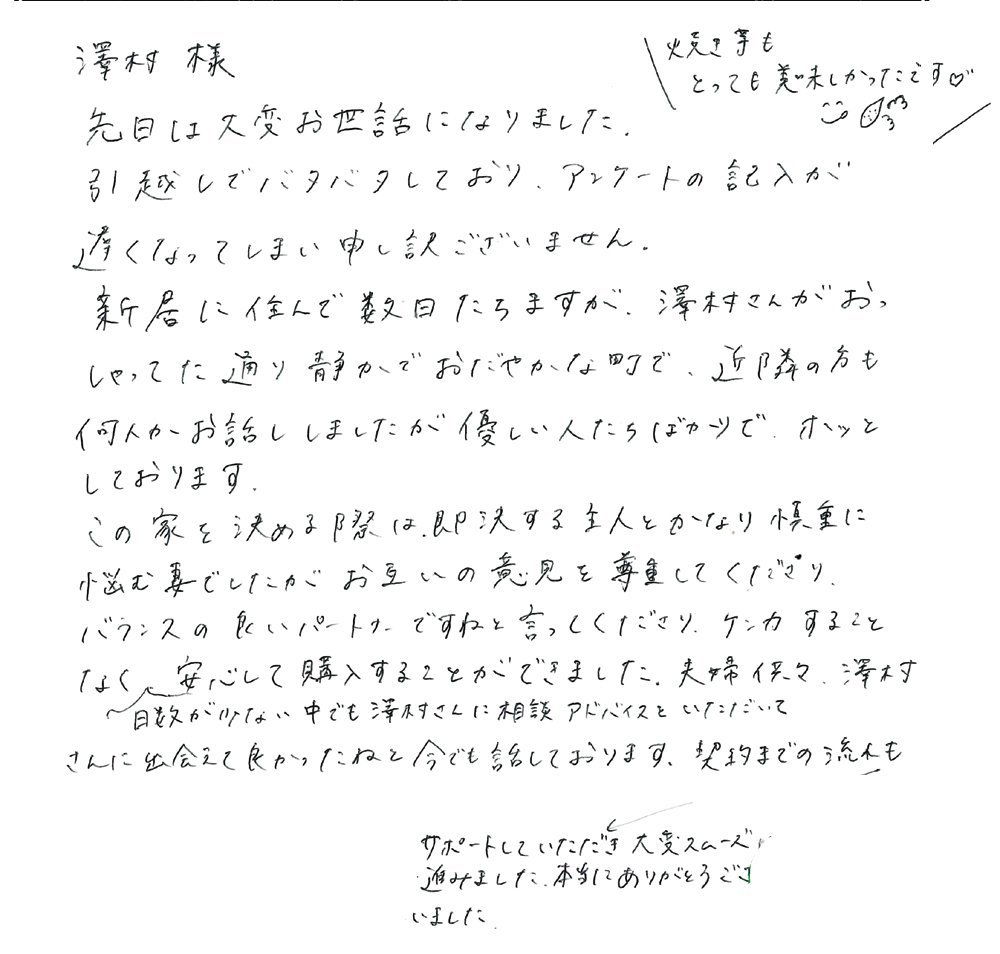 澤村 様
焼き芋も
とっても美味しかったです♡
先日は大変お世話になりました.
引越しでバタバタしており、アンケートの記入が
遅くなってしまい申し訳ございません.
新居に住んで数日たちますが、澤村さんがおっ
しゃってた通り静かでおだやかな町で、近隣の方も
何人かお話ししましたが優しい人たちばかりで、ホッと
しております.
この家を決める際は、即決する主人とかなり慎重に
悩む妻でしたがお互いの意見を尊重してくださり、
バランスの良いパートナーですねと言ってくださり、ケンカすること
なく、安心して購入することができました。夫婦供々、澤村
日数が少ない中でも澤村さんに相談アドバイスといただいて
さんに出会えて良かったねと今でも話しております、契約までの流れも
サポートしていただき大変スムーズ
進みました、本当にありがとうござ
いました.